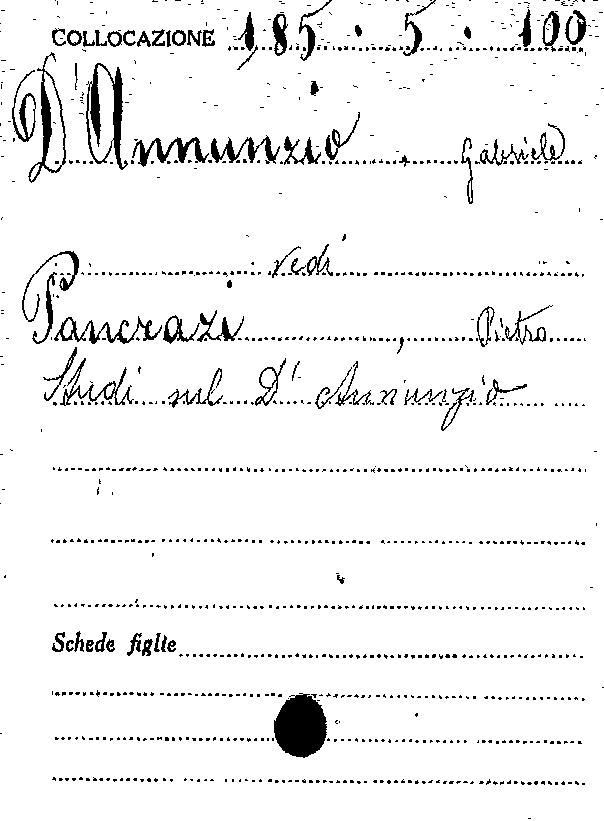 COLLOCAZIONE 185 . 5 . 100
D'Annunzio, Gabriele
vedi
Pancrazi, Pietro
Studi sul D'Annunzio
Schede figlie